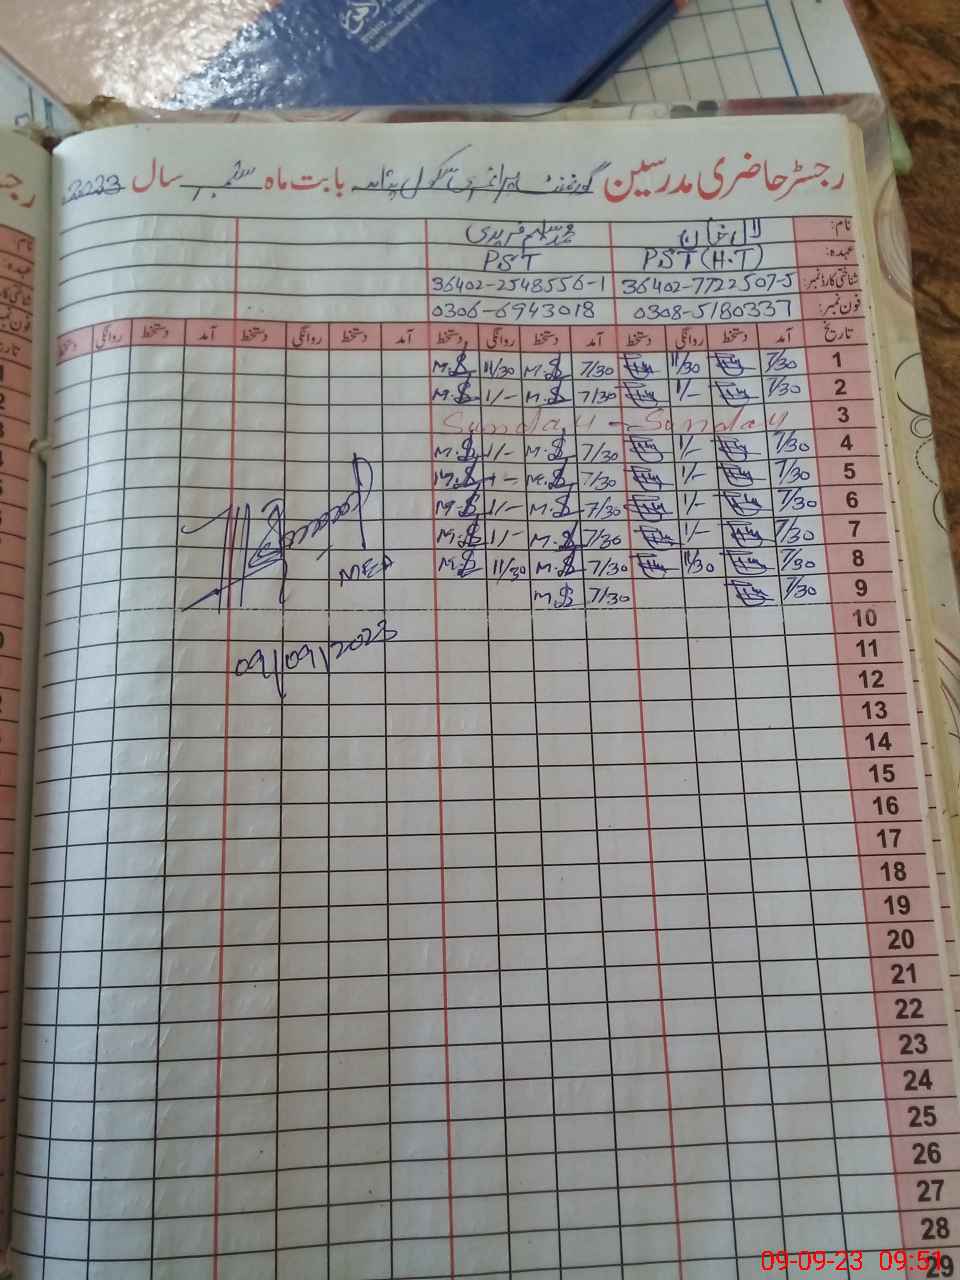 رجسٹر حاضری مدرسین گورنمنٹ پرائمری سکول بابت ماہ ستمبر سال 2023
نام: لال خان محمد سلیم فریدی
عہدہ: PST (H.T) PST
شناختی کارڈ نمبر: 36402-7722507-5 36402-2548556-1
فون نمبر: 0308-5180337 0306-6943018
تاریخ آمد دستخط روانگی دستخط آمد دستخط روانگی دستخط آمد دستخط روانگی دستخط آمد دستخط روانگی دستخط
1 7/30 11/30 7/30 M.S 11/30 M.S
2 7/30 1/- 7/30 M.S 1/- M.S
3 Sunday - Sunday
4 7/30 1/- 7/30 M.S 1/- M.S
5 7/30 1/- 7/30 M.S 1/- M.S
6 7/30 1/- 7/30 M.S 1/- M.S
7 7/30 1/- 7/30 M.S 1/- M.S
8 7/30 11/30 7/30 M.S 11/30 M.S
9 7/30 7/30 M.S
MEA
10
09/09/2023
11
12
13
14
15
16
17
18
19
20
21
22
23
24
25
26
27
28
29
09-09-23 09:51